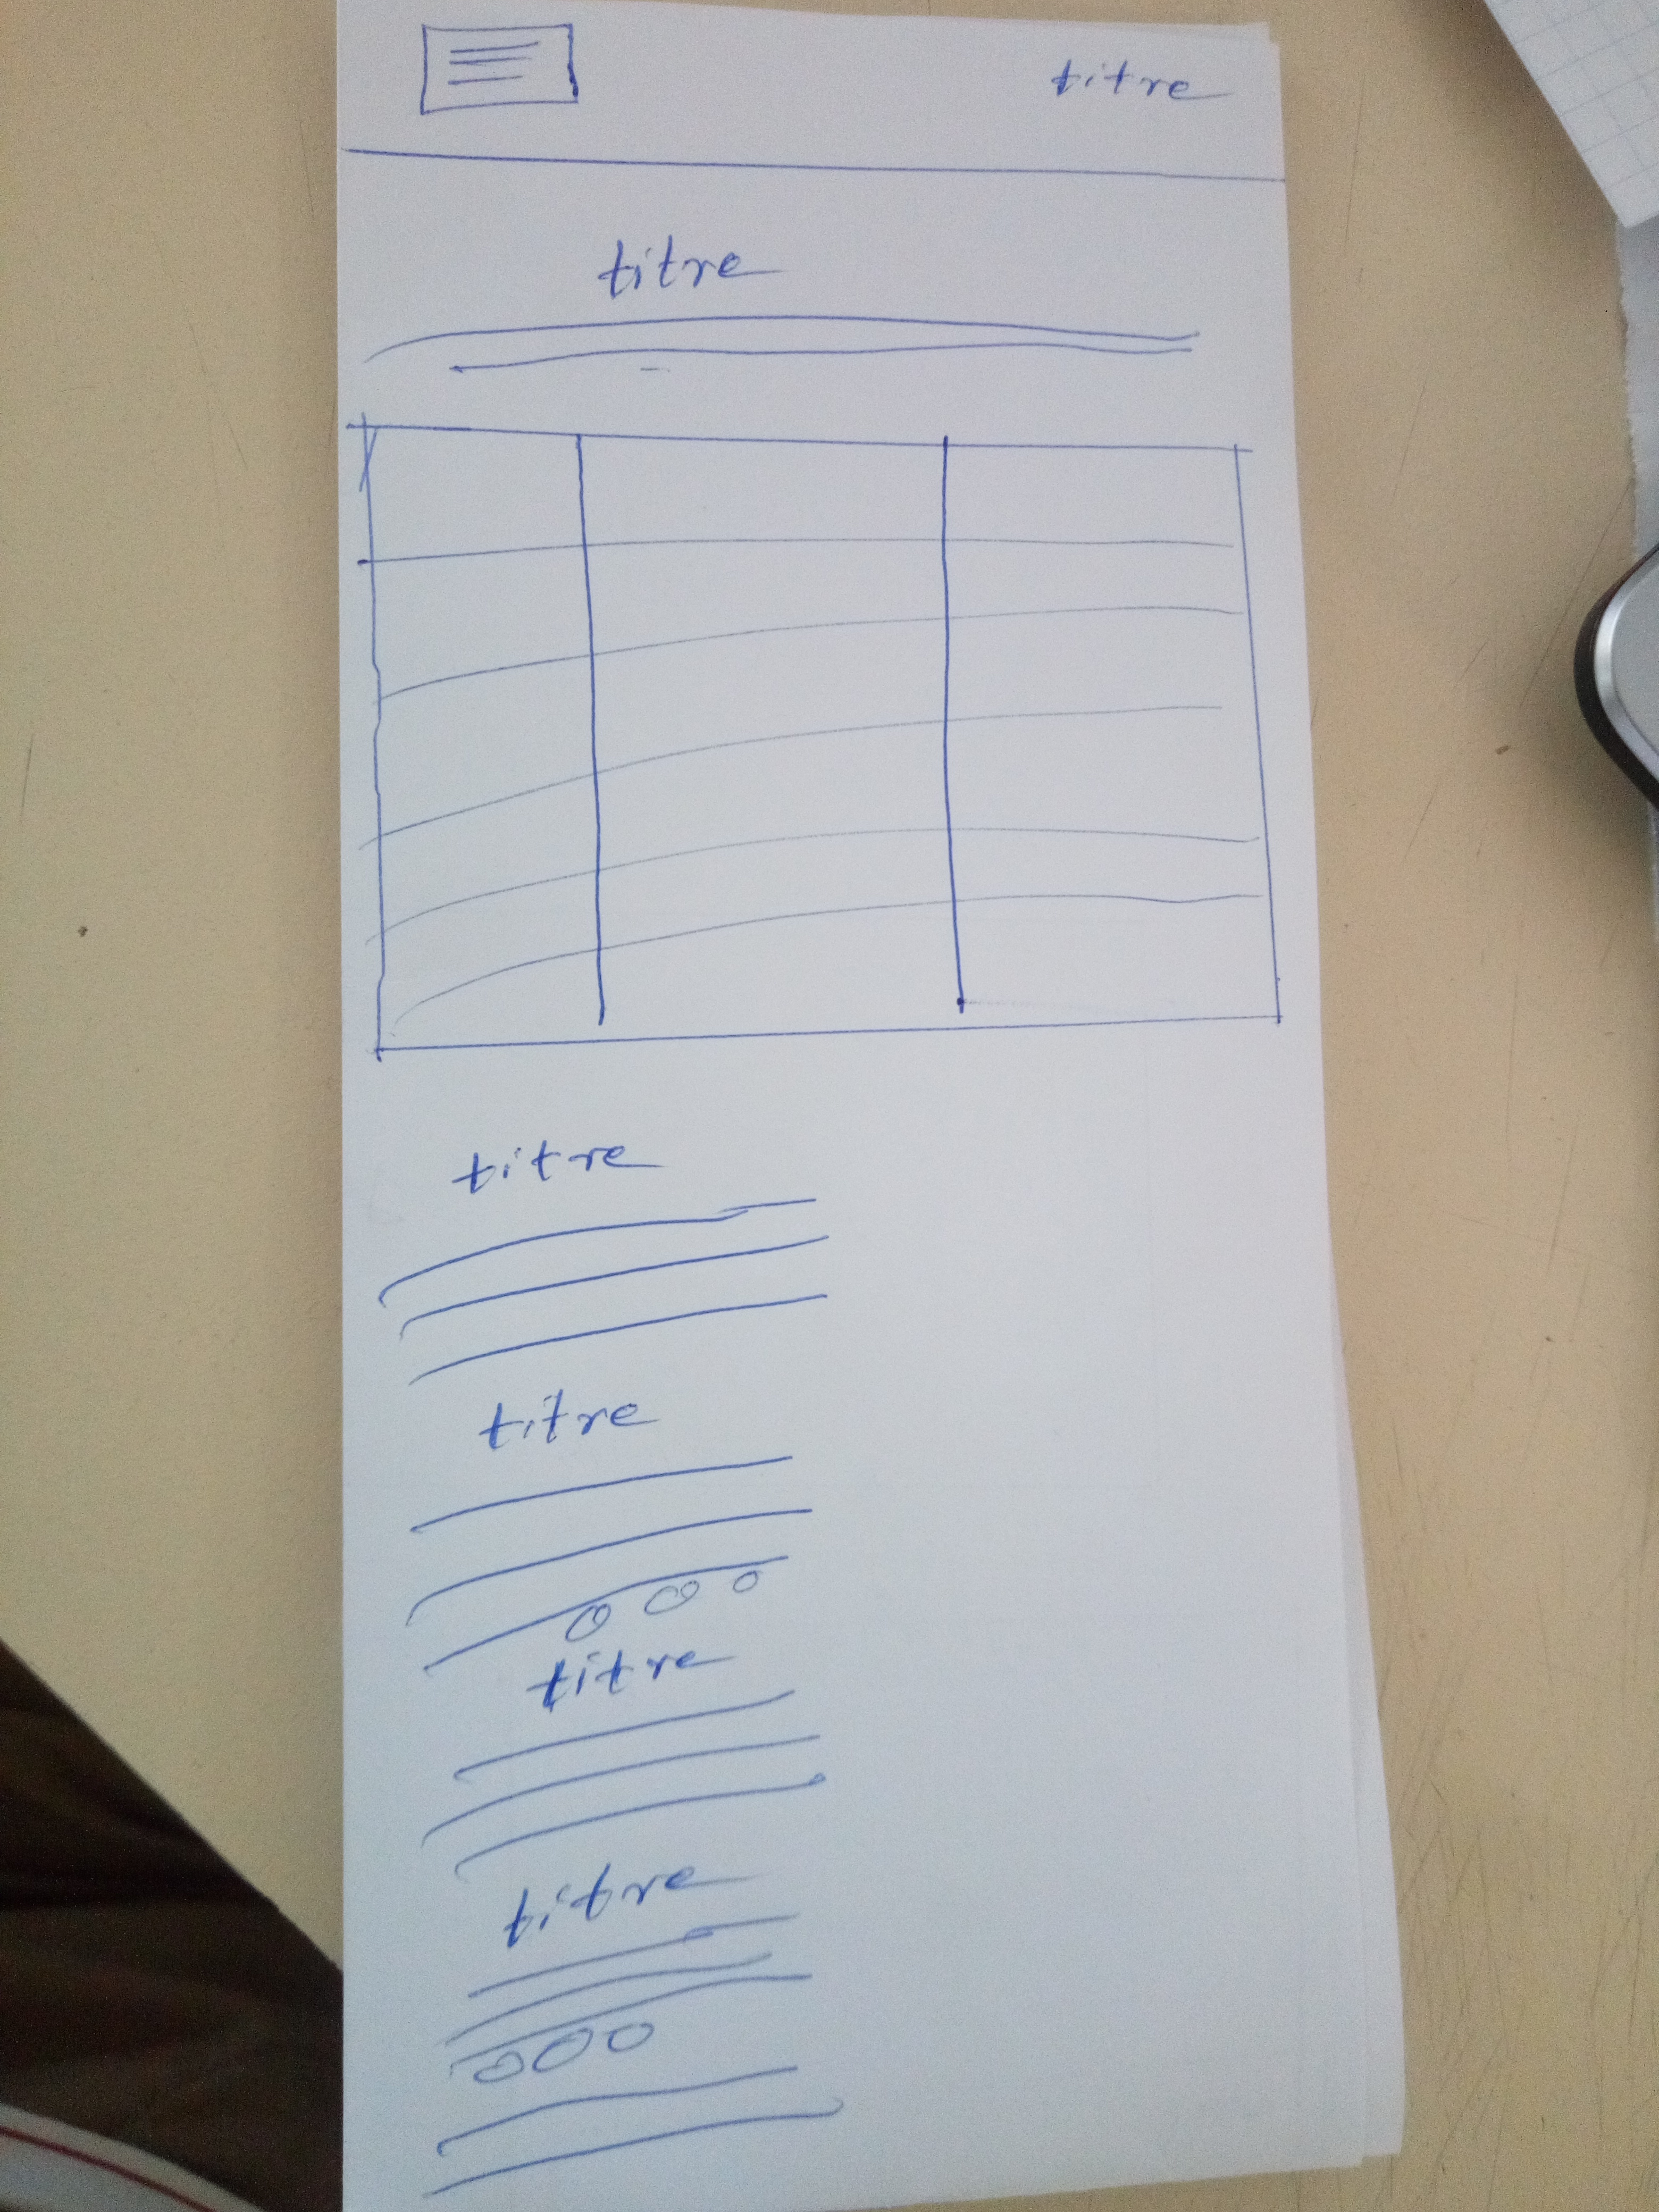 titre
titre
titre
titre
titre
titre